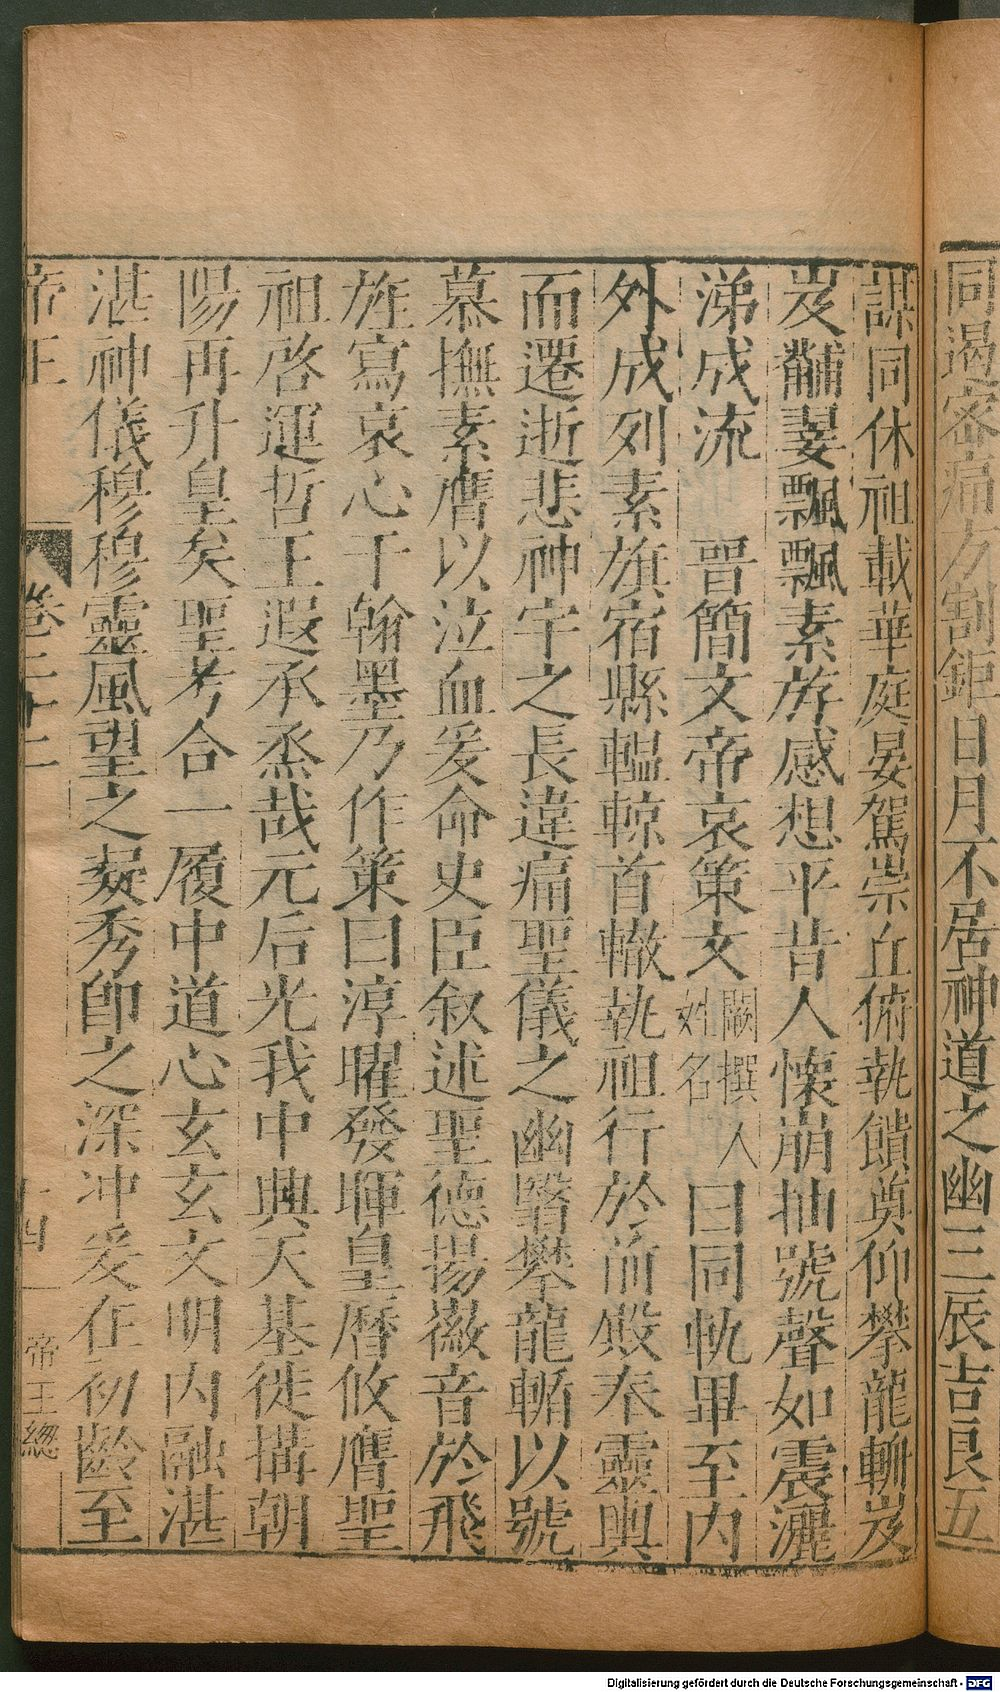 同遏密痛方割鉅日月不居神道之幽三辰吉良五
謀同休祖載華庭晏駕崇丘俯執饋奠仰攀龍輴岌
岌黼翣飄飄素旂感想平昔人懷崩抽號聲如震灑
涕成流 晉簡文帝哀策文 闕撰人姓名 曰同軌畢至內
外成列素旗宿縣轀輬首轍執祖行於前殿奉靈輿
而遷逝悲神宇之長違痛聖儀之幽翳攀龍輴以號
慕撫素膺以泣血爰命史臣叙述聖德揚徽音於飛
旌寫哀心于翰墨乃作策曰淳曜發暉皇曆攸膺聖
祖啓運哲王遐承烝哉元后光我中興天基徙搆朝
陽再升皇矣聖考合一履中道心玄玄文明內融湛
湛神儀穆穆靈風望之䒞秀卽之深冲爰在初齡至
帝王 卷二十二 十四 帝王總
Digitalisierung gefördert durch die Deutsche Forschungsgemeinschaft - DFG